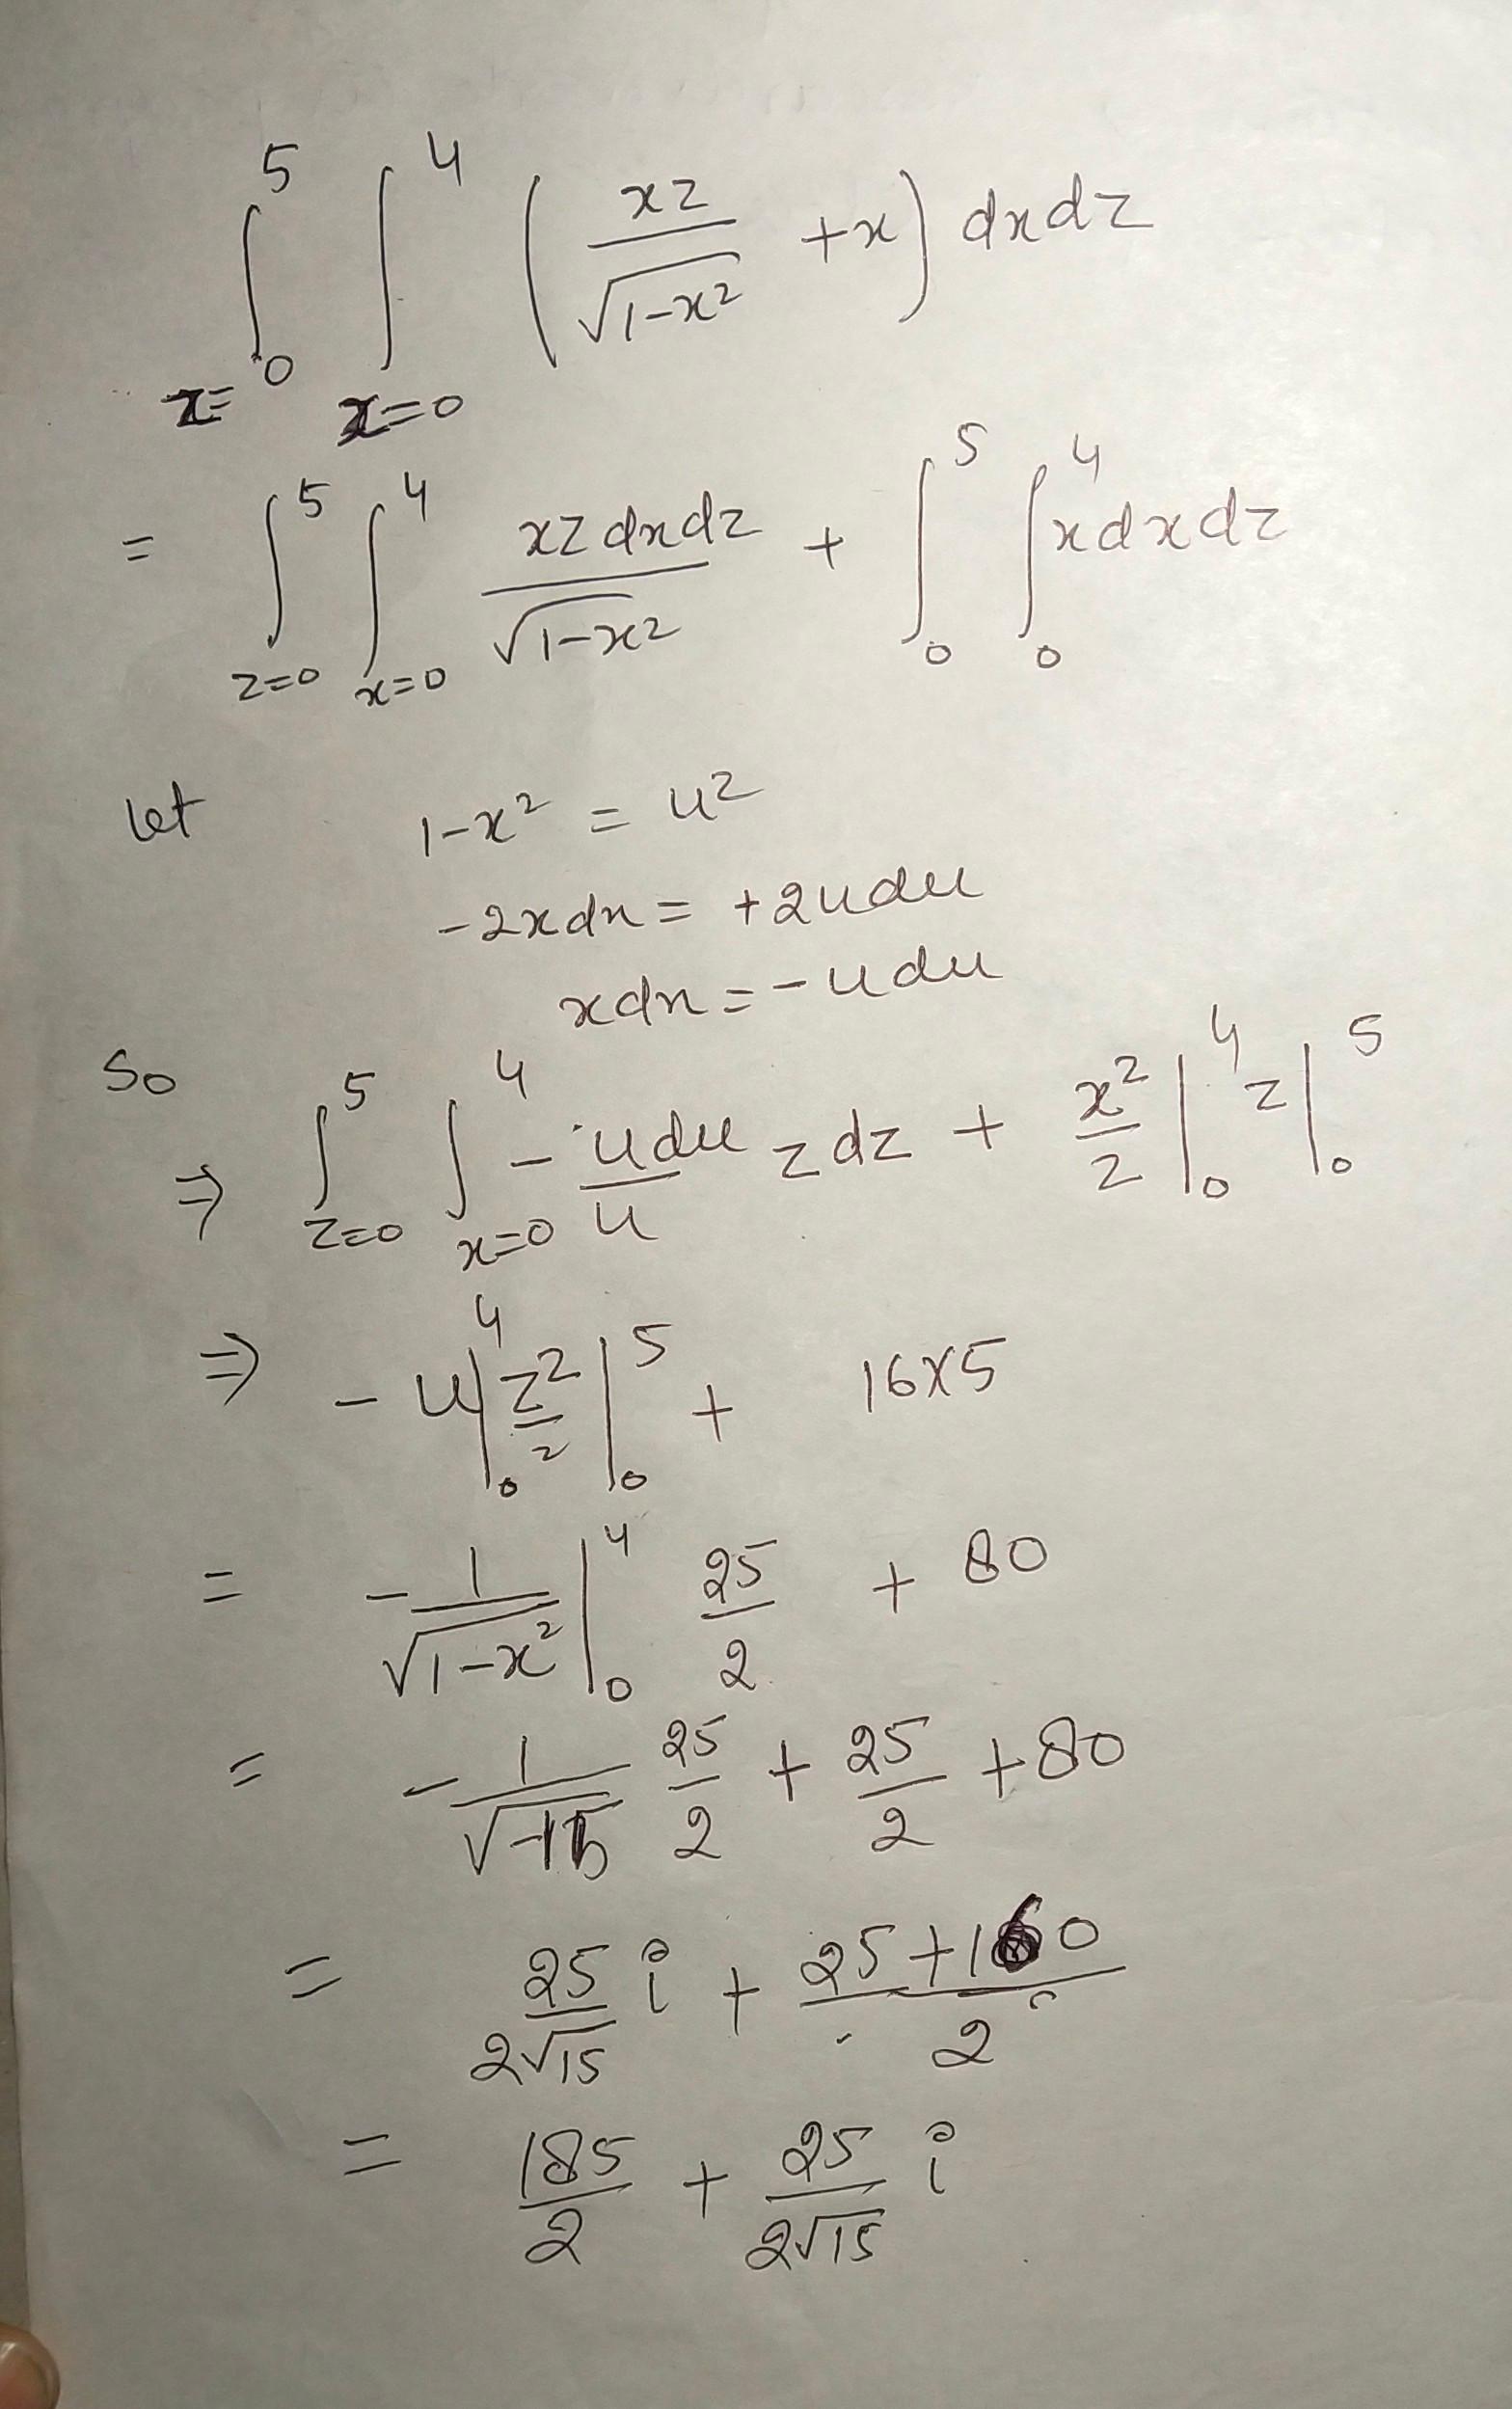 ∫_{z=0}^{5} ∫_{x=0}^{4} ( xz/√(1-x²) + x ) dx dz
= ∫_{z=0}^{5} ∫_{x=0}^{4} xz dx dz/√(1-x²) + ∫_0^5 ∫_0^4 x dx dz
let 1-x² = u²
-2x dx = +2u du
x dx = -u du
So
⇒ ∫_{z=0}^{5} ∫_{x=0}^{4} - u du/u z dz + x²/2 |_0^4 z |_0^5
⇒ - u |_0^4 z²/2 |_0^5 + 16×5
= - 1/√(1-x²) |_0^4 25/2 + 80
= - 1/√-15 25/2 + 25/2 + 80
= 25/2√15 i + (25+160)/2
= 185/2 + 25/2√15 i